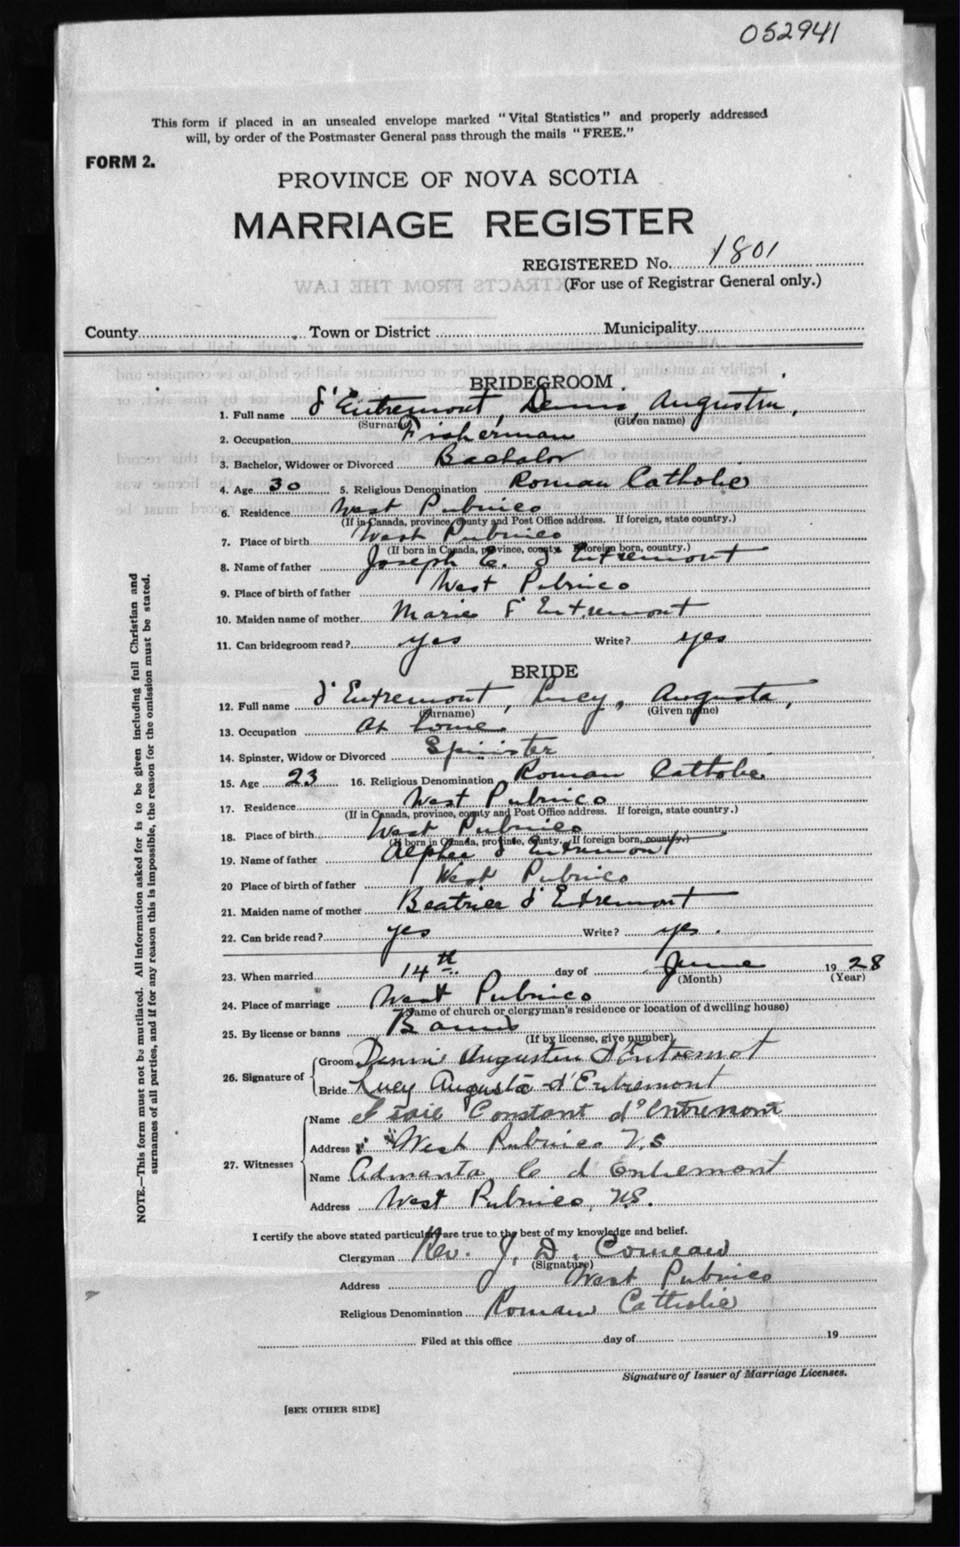 052941
This form if placed in an unsealed envelope marked "Vital Statistics" and properly addressed
will, by order of the Postmaster General pass through the mails "FREE."
FORM 2.
PROVINCE OF NOVA SCOTIA
MARRIAGE REGISTER
REGISTERED No. 1801
(For use of Registrar General only.)
County Town or District Municipality
BRIDEGROOM
1. Full name d'Entremont, Dennis, Augustin,
(Surname) (Given name)
2. Occupation Fisherman
3. Bachelor, Widower or Divorced Bachelor
4. Age 30 5. Religious Denomination Roman Catholic
6. Residence West Pubnico
(If in Canada, province, county and Post Office address. If foreign, state country.)
7. Place of birth West Pubnico
(If born in Canada, province, county. If foreign born, country.)
8. Name of father Joseph E. d'Entremont
9. Place of birth of father West Pubnico
10. Maiden name of mother Marie d'Entremont
11. Can bridegroom read? yes Write? yes
BRIDE
12. Full name d'Entremont, Lucy, Augusta,
(Surname) (Given name)
13. Occupation At home
14. Spinster, Widow or Divorced Spinister
15. Age 23 16. Religious Denomination Roman Catholic
17. Residence West Pubnico
(If in Canada, province, county and Post Office address. If foreign, state country.)
18. Place of birth West Pubnico
(If born in Canada, province, county. If foreign born, country.)
19. Name of father Alphee d'Entremont
20 Place of birth of father West Pubnico
21. Maiden name of mother Beatrice d'Entremont
22. Can bride read? yes Write? yes.
23. When married 14th day of June 1928
(Month) (Year)
24. Place of marriage West Pubnico
(Name of church or clergyman's residence or location of dwelling house)
25. By license or banns Banns
(If by license, give number)
26. Signature of
Groom Dennis Augustin d'Entremont
Bride Lucy Augusta d'Entremont
27. Witnesses
Name Constant d'Entremont
Address West Pubnico N.S
Name Admanta C d Entremont
Address West Pubnico, N.S.
I certify the above stated particulars are true to the best of my knowledge and belief.
Clergyman Rev. J. D. Comeau
(Signature)
Address West Pubnico
Religious Denomination Roman Catholic
Filed at this office day of 19
Signature of Issuer of Marriage Licenses.
[SEE OTHER SIDE]
NOTE.—This form must not be mutilated. All information asked for is to be given including full Christian and
surnames of all parties, and if for any reason this is impossible, the reason for the omission must be stated.